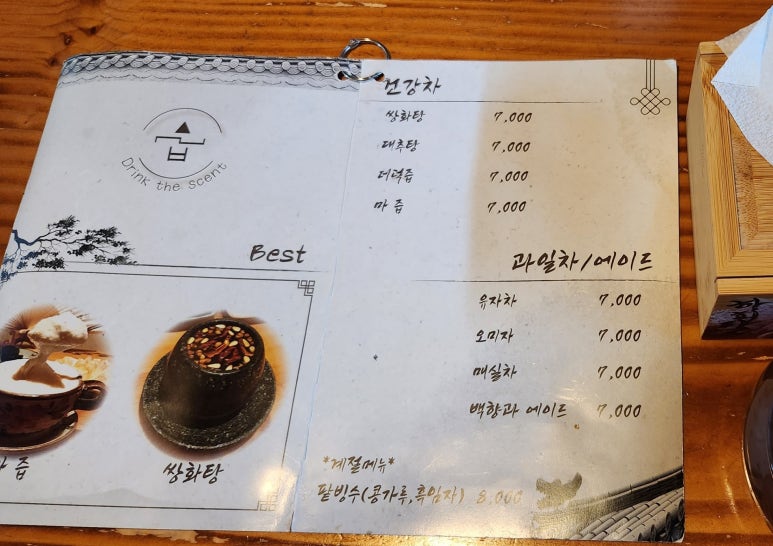 숩
Drink the scent
Best
즙
쌍화탕
건강차
쌍화탕 7,000
대추탕 7,000
더덕즙 7,000
마 즙 7,000
과일차/에이드
유자차 7,000
오미자 7,000
매실차 7,000
백향과 에이드 7,000
*계절메뉴*
팥빙수(콩가루,흑임자) 8,000